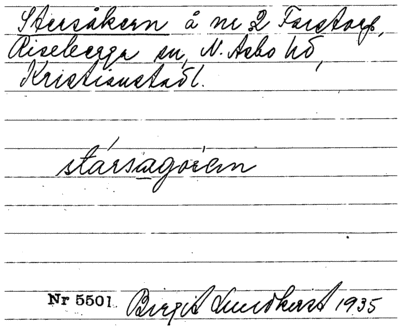 Stersåkern å nr 2 Färstorp,
Riseberga sn, N. Åsbo hd,
Kristianstadl.
stársagórn
Nr 5501 Birgit Lundkvist 1935